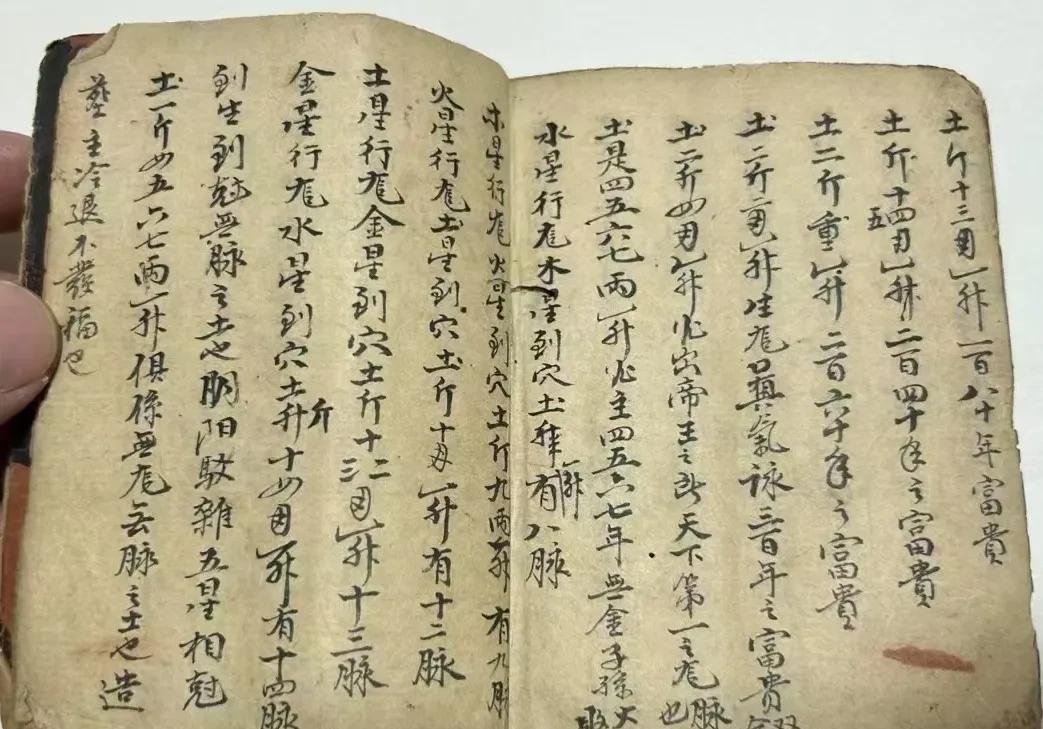 土斤十三两一升一百八十年富貴
土斤十四五两一升二百四十年之富貴
土二斤重一升二百六十年之富貴
土二斤二两一升生龙口真氣詠三百年之富貴
土二斤四两一升必出帝王之 天下第一之龙脉也
土是四五六七两一升必主四五六七年無金子孫大敗
水星行龙木星到穴土一升有八脉
木星行龙火星到穴土斤九两一升有九脉
火星行龙土星到穴土斤十两一升有十二脉
土星行龙金星到穴土斤十二三两一升十三脉
金星行龙水星到穴土斤升十四两一升有十四脉
到生到尅無脉之土也阴阳駁雜五星相尅
土一斤四五六七两一升俱係無龙無脉之土也造
葬主冷退不發福也